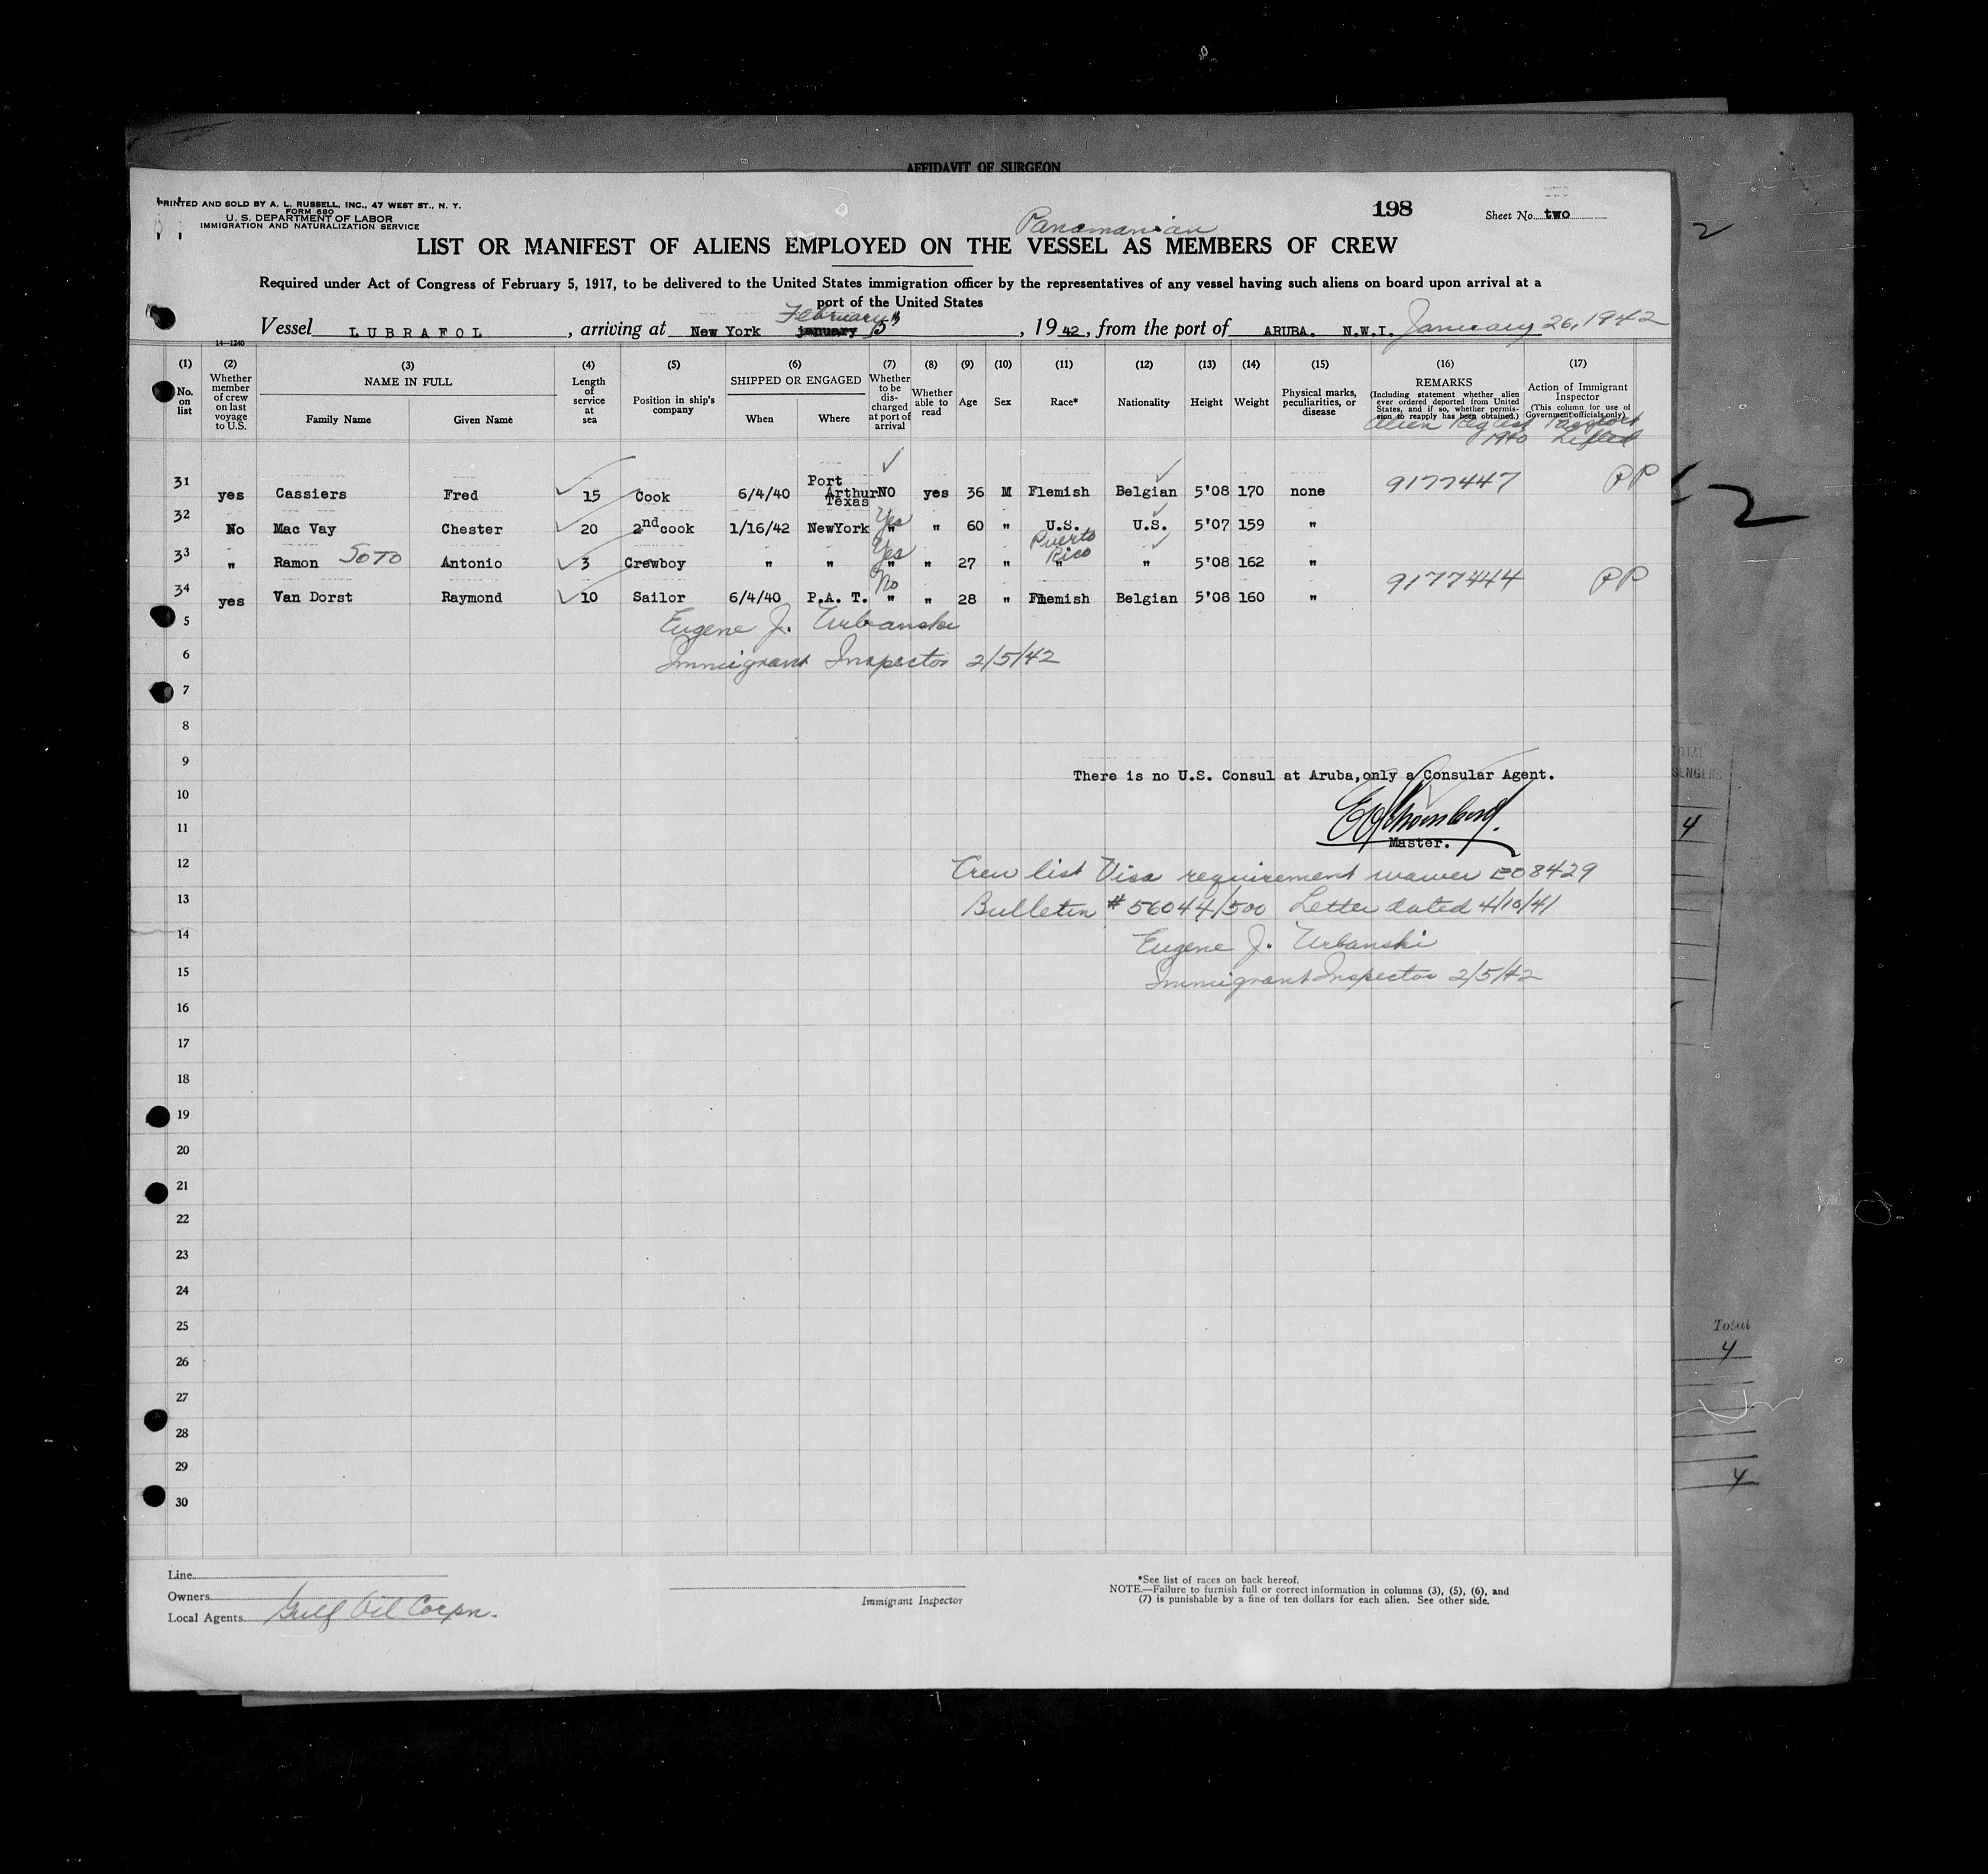 AFFIDAVIT OF SURGEON
PRINTED AND SOLD BY A. L. RUSSELL, INC., 47 WEST ST., N. Y.
FORM 680
U. S. DEPARTMENT OF LABOR
IMMIGRATION AND NATURALIZATION SERVICE
198
Sheet No. two
2
Panamanian
LIST OR MANIFEST OF ALIENS EMPLOYED ON THE VESSEL AS MEMBERS OF CREW
Required under Act of Congress of February 5, 1917, to be delivered to the United States immigration officer by the representatives of any vessel having such aliens on board upon arrival at a
port of the United States
February 5th
Vessel LUBRAFOL, arriving at New York january, 1942, from the port of ARUBA. N.W.I. January 26, 1942
14-1240
(1) (2) (3) (4) (5) (6) (7) (8) (9) (10) (11) (12) (13) (14) (15) (16) (17)
No. on list
Whether member of crew on last voyage to U.S.
NAME IN FULL
Family Name Given Name
Length of service at sea
Position in ship's company
SHIPPED OR ENGAGED
When Where
Whether to be discharged at port of arrival
Whether able to read
Age
Sex
Race*
Nationality
Height
Weight
Physical marks, peculiarities, or disease
REMARKS
(Including statement whether alien ever ordered deported from United States, and if so, whether permission to reapply has been obtained.)
Action of Immigrant Inspector
(This column for use of Government officials only)
Alien Reg Act 1940
Passport Lifted
31 yes Cassiers Fred 15 Cook 6/4/40 Port Arthur Texas NO yes 36 M Flemish Belgian 5'08 170 none 9177447 PP
2
32 No Mac Vay Chester 20 2nd cook 1/16/42 NewYork " Yes " 60 " U.S. U.S. 5'07 159 "
33 " Ramon SOTO Antonio 3 Crewboy " " " Yes " 27 " " Puerto Rico " 5'08 162 "
34 yes Van Dorst Raymond 10 Sailor 6/4/40 P.A. T. " No " 28 " Flemish Belgian 5'08 160 " 9177444 PP
5 Eugene J. Urbanski
6 Immigrant Inspector 2/5/42
7
8
9
There is no U.S. Consul at Aruba,only a Consular Agent.
10
11
Master.
12 Crew list Visa requirement waiver EO 8429
13 Bulletin # 56044/500 Letter dated 4/10/41
14 Eugene J. Urbanski
15 Immigrant Inspector 2/5/42
16
17
18
19
20
21
22
23
24
25
26
27
28
29
30
TOTAL
4
Total
4
4
Line
Owners
Local Agents Gulf Oil Corpn.
Immigrant Inspector
*See list of races on back hereof.
NOTE.—Failure to furnish full or correct information in columns (3), (5), (6), and
(7) is punishable by a fine of ten dollars for each alien. See other side.